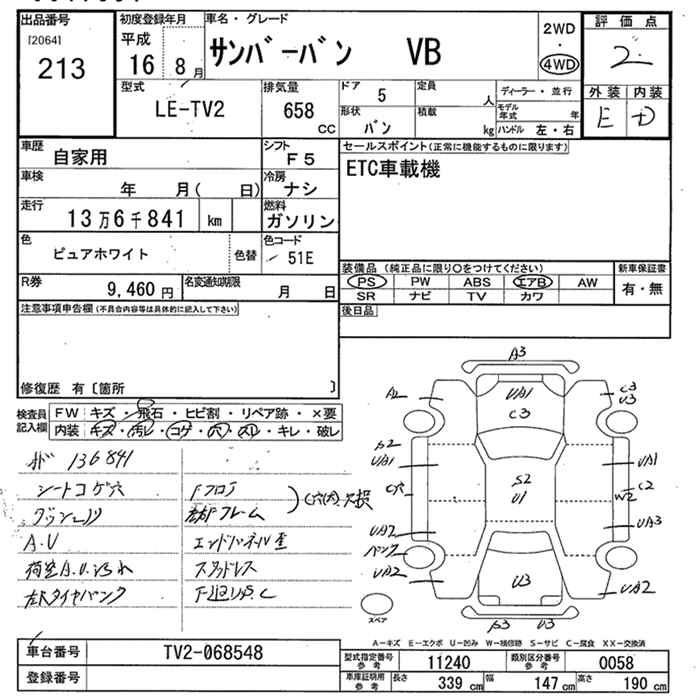 出品番号 初度登録年月 車名・グレード 2WD 評価点
[2064] 平成 サンバーバン VB ・ 2
213 16 8月 4WD 外装 内装
型式 排気量 ドア 5 定員 人 ディーラー・並行 E D
LE-TV2 658 cc 形状 バン 積載 kg モデル年式 年
ハンドル 左・右
車歴 自家用 シフト F5 セールスポイント(正常に機能するものに限ります)
車検 年 月( 日) 冷房 ナシ ETC車載機
走行 13万6千841 km 燃料 ガソリン
色 ピュアホワイト 色替 色コード 51E
R券 9,460円 名変通知期限 月 日
装備品(純正品に限り〇をつけてください) 新車保証書
PS PW ABS エアB AW 有・無
SR ナビ TV カワ
注意事項申告欄(不具合内容等は具体的に記入して下さい) 後日品
修復歴 有〔箇所 〕
検査員記入欄 FW キズ・飛石・ヒビ割・リペア跡・×要
内装 キズ・汚レ・コゲ・穴・スレ・キレ・破レ
136841
シートコゲ穴 Fフロア
フレーム
A.U エンドパネル歪
スタッドレス
左Rタイヤパンク
A3
A2 UA1 C3
C3 U3
S2
UA1 S2 UA1
C穴 U1 C2
W2
UA2 UA3
パンク
UA2 U3 UA2
スペア S3 U3
A-キズ E-エクボ U-凹み W-補修跡 S-サビ C-腐食 XX-交換済
車台番号 TV2-068548 型式指定番号参考 11240 類別区分番号参考 0058
登録番号 車庫証明用参考 長さ 339cm 幅 147cm 高さ 190cm